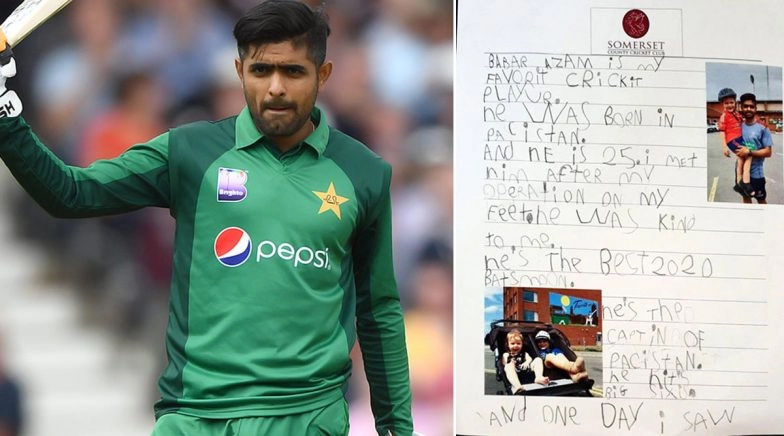 Brighto
pepsi
SOMERSET
COUNTY CRICKET CLUB
BABAR AZAM is my
FAVORIT CRICKIT
PLAYUR.
he WAS BORN IN
PACISTAN.
AND HE IS 25. i met
him AFTER my
OPERATION ON my
FEET. he WAS KIND
to me.
he's The BesT 2020
BATSMOON.
he's The
CAPTIN OF
PACISTAN.
he hits
BIG
AND ONE DAY i SAW